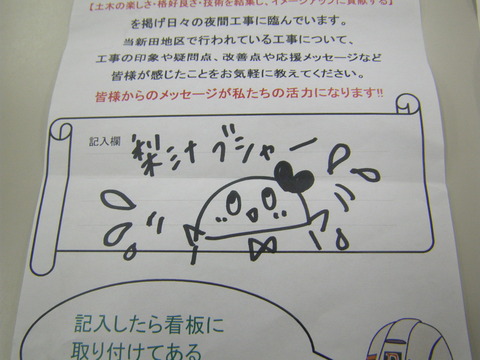 【土木の楽しさ・格好良さ・技術を結集し、イメージアップに貢献する】
を掲げ日々の夜間工事に臨んでいます。
当新田地区で行われている工事について、
工事の印象や疑問点、改善点や応援メッセージなど
皆様が感じたことをお気軽に教えてください。
皆様からのメッセージが私たちの活力になります!!
記入欄
梨汁ブシャー
記入したら看板に
取り付けてある